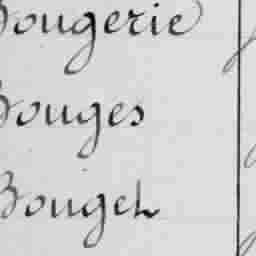 Bougerie
Bouges
Bouget